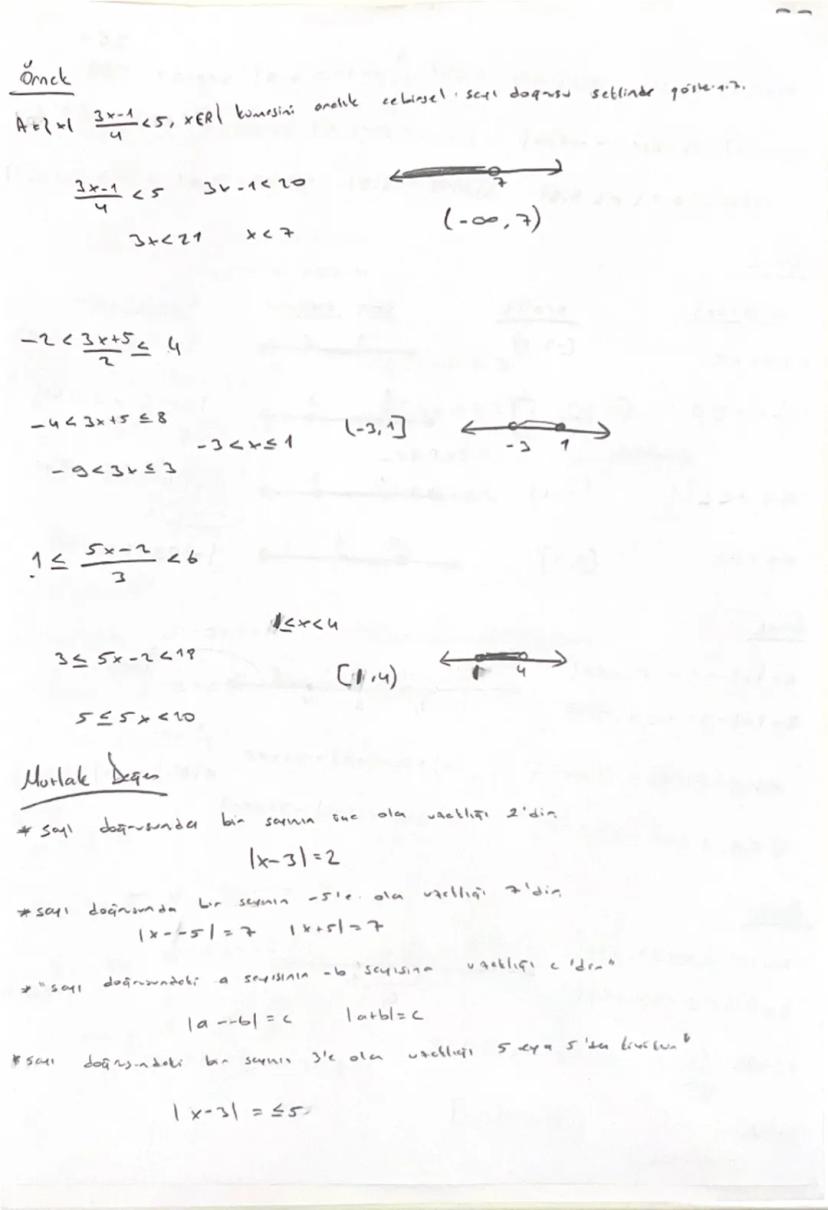 Örnek
A={x| (3x-1)/4 < 5, x∈R} kümesini aralık cebirsel, sayı doğrusu şeklinde gösteriniz.
(3x-1)/4 < 5   3x-1<20
7
3x<21   x<7   (-∞, 7)
-2 < (3x+5)/2 ≤ 4
-4<3x+5≤8
-3<x≤1   (-3,1]   -3   1
-9<3x≤3
1 ≤ (5x-2)/3 < 6
1≤x<4
3≤5x-2<18   [1,4)   1   4
5≤5x<20
Mutlak Değer
* Sayı doğrusunda bir sayının üçe olan uzaklığı 2'dir
|x-3|=2
* Sayı doğrusunda bir sayının -5'e olan uzaklığı 7'dir
|x--5|=7   |x+5|=7
* "Sayı doğrusundaki a sayısının -b sayısına uzaklığı c'dir"
|a--b|=c   |a+b|=c
* Sayı doğrusundaki bir sayının 3'e olan uzaklığı 5 5'den
|x-3| = ≤5